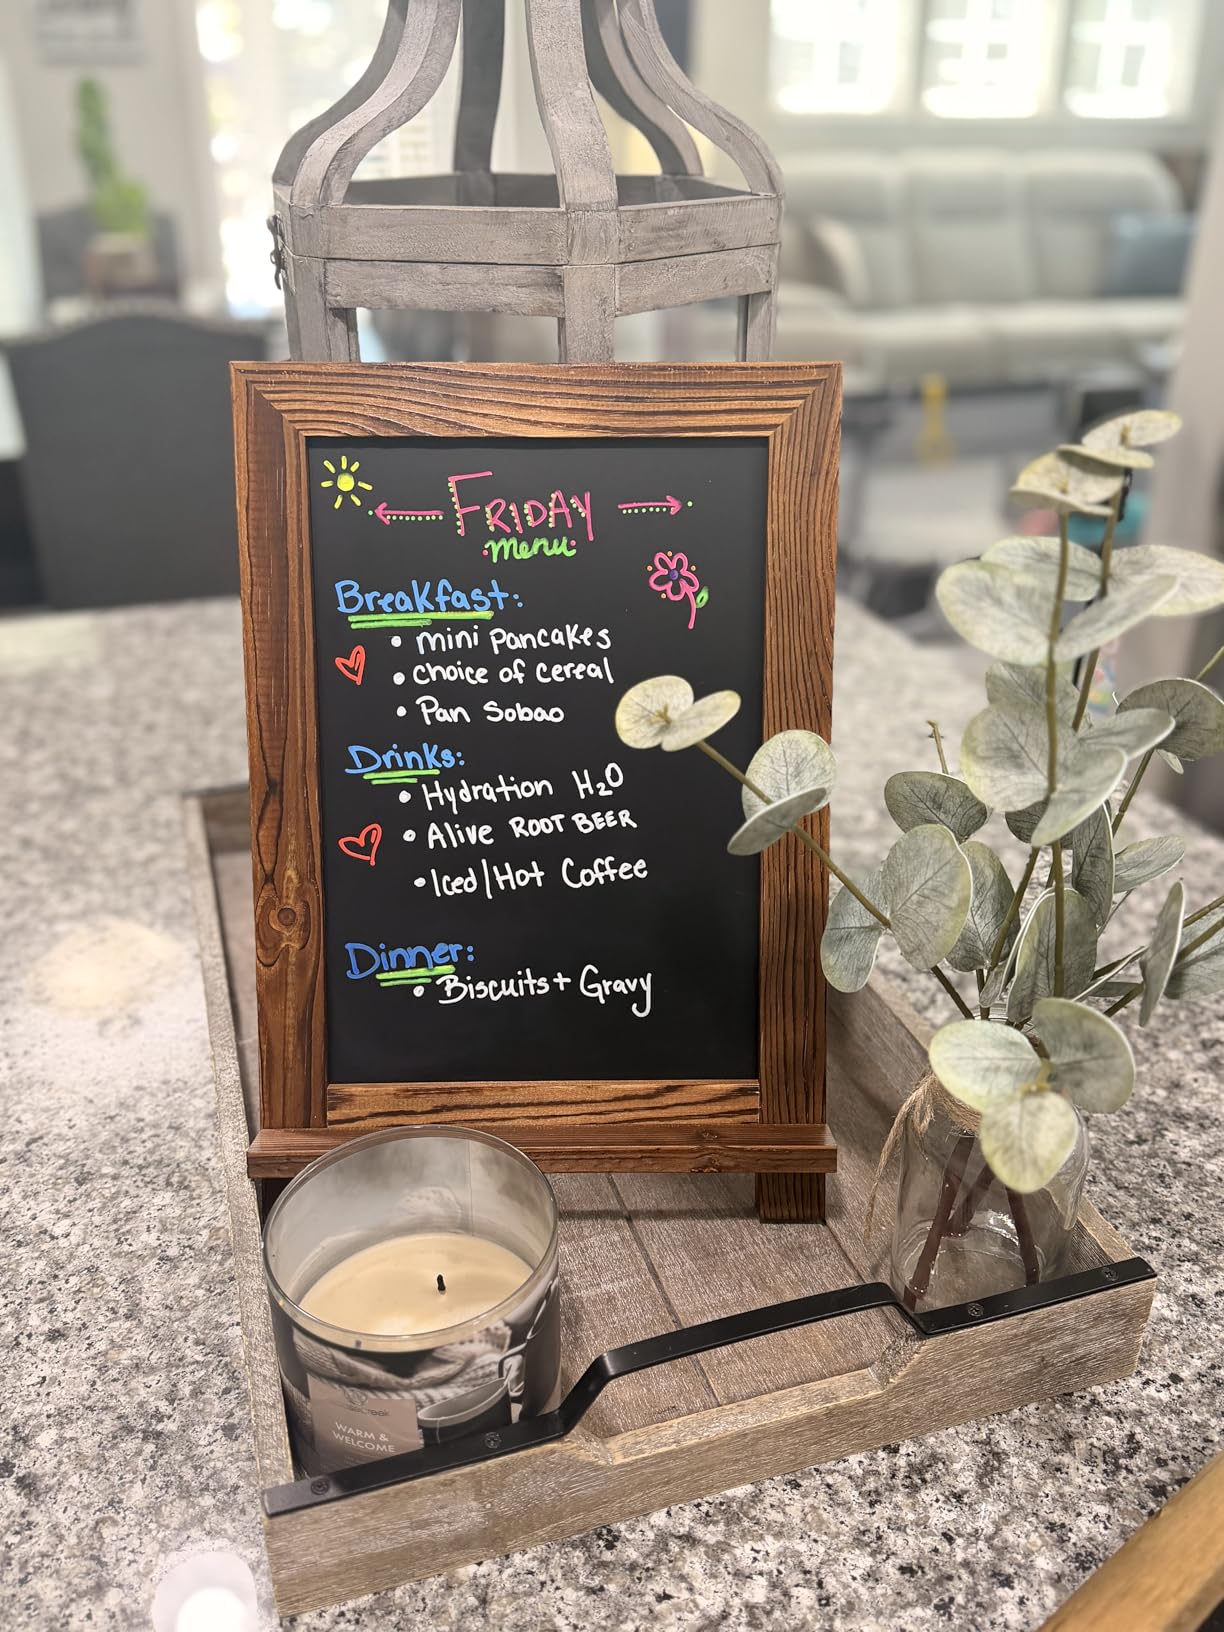 FRIDAY
menu
Breakfast:
• mini pancakes
• choice of cereal
• Pan Sobao
Drinks:
• Hydration H₂O
• Alive ROOT BEER
• Iced/Hot Coffee
Dinner:
• Biscuits + Gravy
WARM &
WELCOME